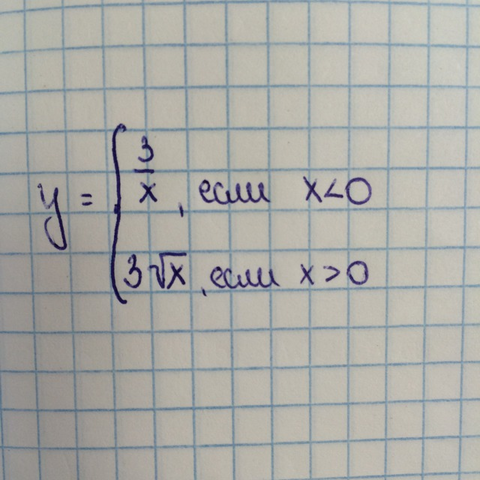 y = { 3/x, если x<0
3√x, если x>0